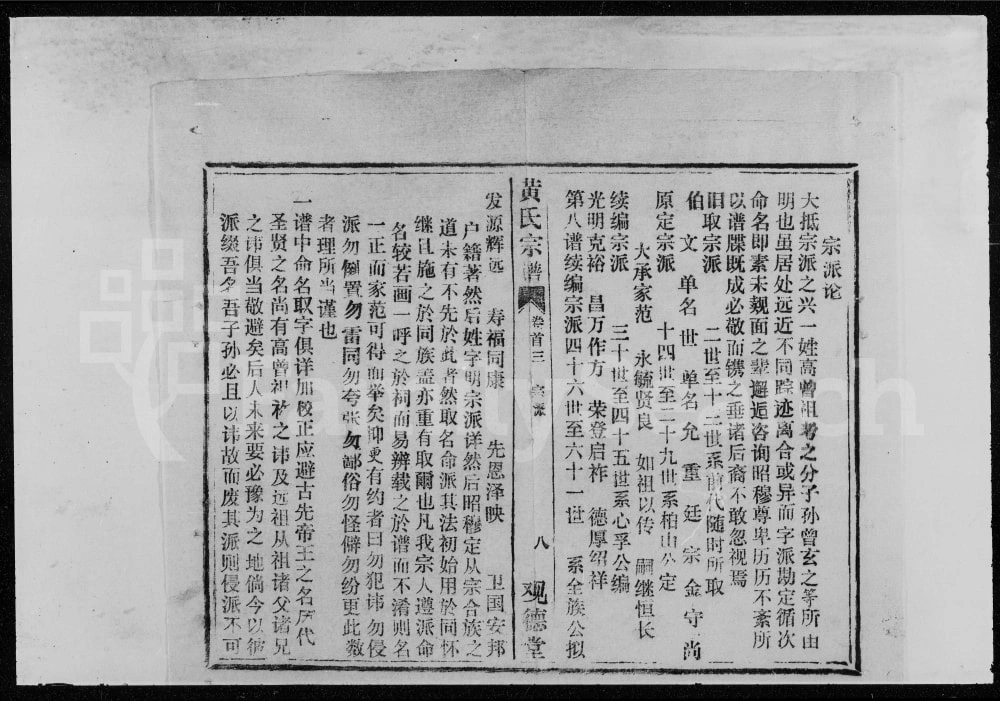 宗派论
大抵宗派之兴一姓高曾祖考之分子孙曾玄之等所由
明也虽居处远近不同踪迹离合或异而字派勘定循次
命名即素未觌面之辈邂逅咨询昭穆尊卑历历不紊所
以谱牒既成必敬而镌之垂诸后裔不敢忽视焉
旧取宗派 二世至十三世系前代随时所取
伯 文 单名 世 单名 允 重 廷 宗 金 守 尚
原定宗派 十四世至二十九世系柏山公定
大承家范 永毓贤良 如祖以传 嗣继恒长
续编宗派 三十世至四十五世系心孚公编
光明克裕 昌万作方 荣登启祚 德厚绍祥
第八谱续编宗派四十六世至六十一世 系全族公拟
黄氏宗谱 卷首三 宗派 八 观德堂
发源辉远 寿福同康 先恩泽映 卫国安邦
户籍著然后姓字明宗派详然后昭穆定从宗合族之
道未有不先於此者然取名命派其法初始用於同怀
继且施之於同族盖亦重有取爾也凡我宗人遵派命
名较若画一呼之於祠而易辨载之於谱而不淆则名
一正而家范可得而举矣抑更有约者曰勿犯讳勿侵
派勿倒置勿雷同勿夸张勿鄙俗勿怪僻勿纷更此数
者理所当谨也
一谱中命名取字俱详加校正应避古先帝王之名历代
圣贤之名尚有高曾祖祢之讳及远祖从祖诸父诸兄
之讳俱当敬避矣后人未来要必豫为之地倘今以彼
派缀吾名吾子孙必且以讳故而废其派则侵派不可